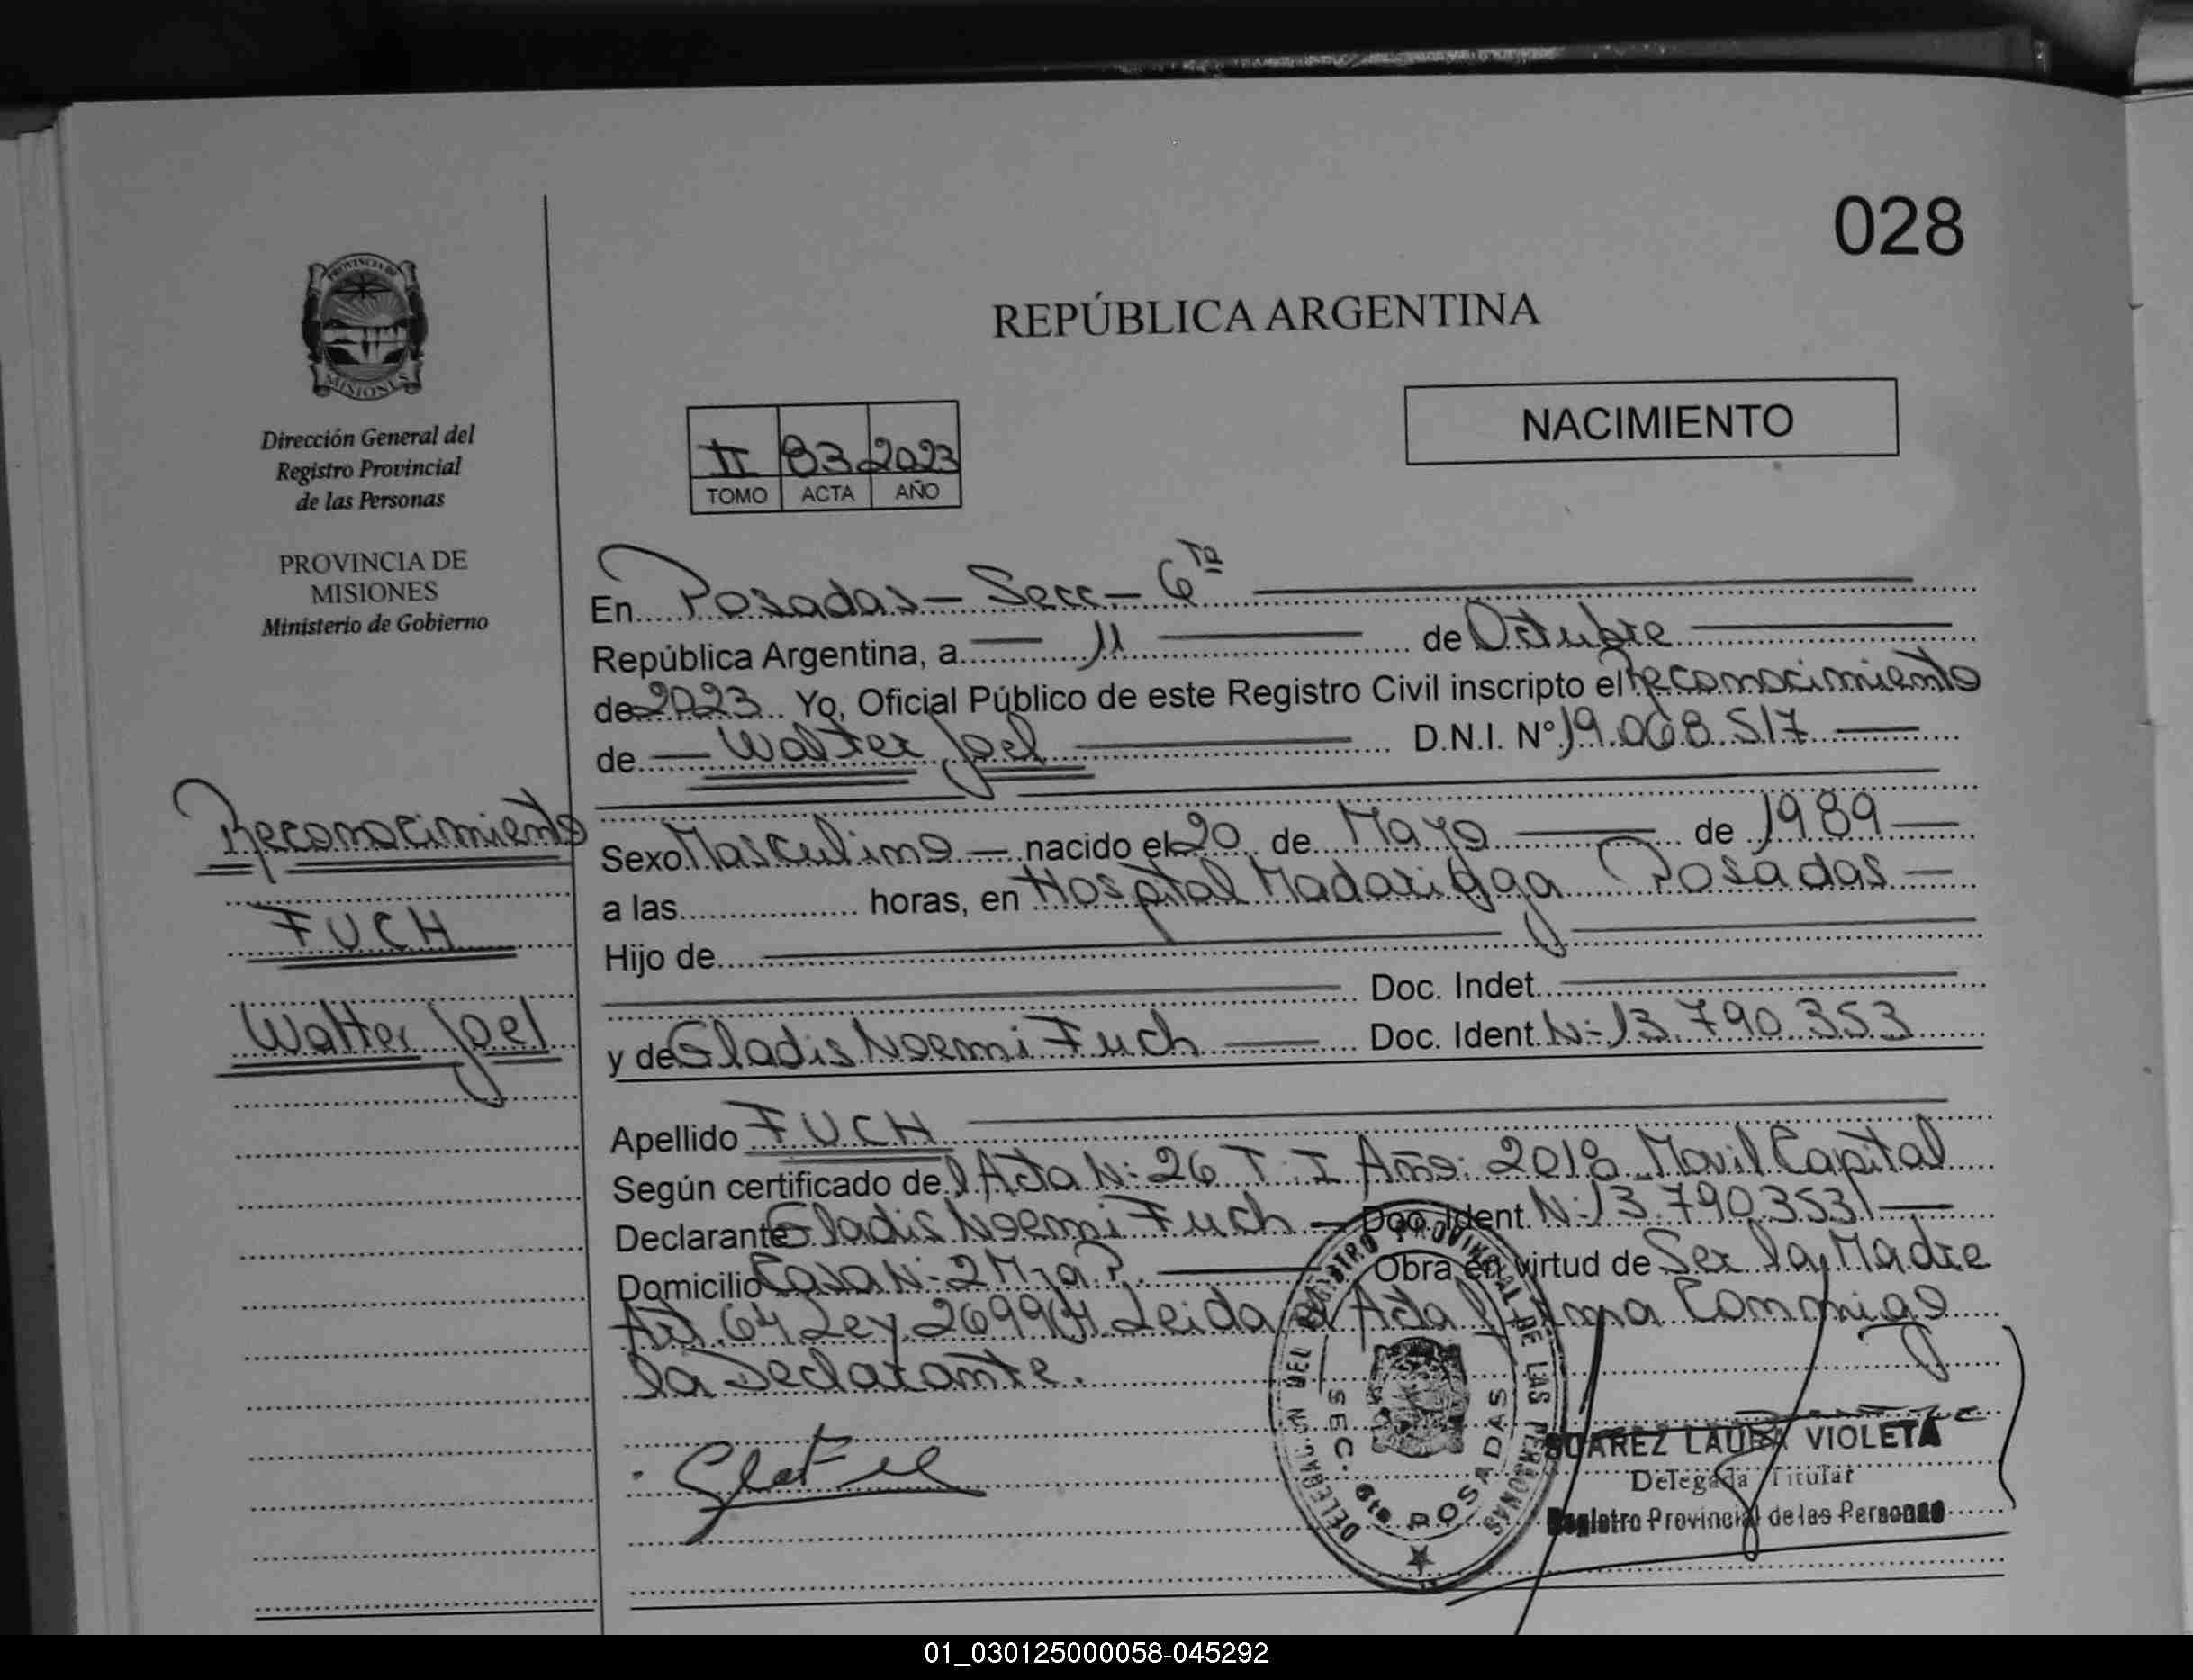 028
PROVINCIA DE
MISIONES
Dirección General del
Registro Provincial
de las Personas
PROVINCIA DE
MISIONES
Ministerio de Gobierno
REPÚBLICA ARGENTINA
NACIMIENTO
II 83 2023
TOMO ACTA AÑO
En Posadas - Secc - 6ta
República Argentina, a 11 de Octubre
de 2023 Yo, Oficial Público de este Registro Civil inscripto el Reconocimiento
de Walter Joel D.N.I. Nº 19.068.517
Sexo Masculino nacido el 20 de Mayo de 1989
a las horas, en Hospital Madariaga Posadas
Hijo de
Doc. Indet.
y de Gladis Noemi Fuch Doc. Ident. N: 13.790.353
Apellido FUCH
Según certificado del Acta N: 26 T: I Año: 2018 Movil Capital
Declarante Gladis Noemi Fuch Doc. Ident. N: 13.790.353
Domicilio Casa N: 2 Mza Obra en virtud de Ser la Madre
Art. 64 Ley 26994 Leida el Acta firma Conmigo
la Declarante.
Reconocimiento
FUCH
Walter Joel
DELEGACION DEL REGISTRO PROVINCIAL DE LAS PERSONAS
SECC. 6ta POSADAS
SUAREZ LAURA VIOLETA
Delegada Titular
Registro Provincial de las Personas
01_030125000058-045292